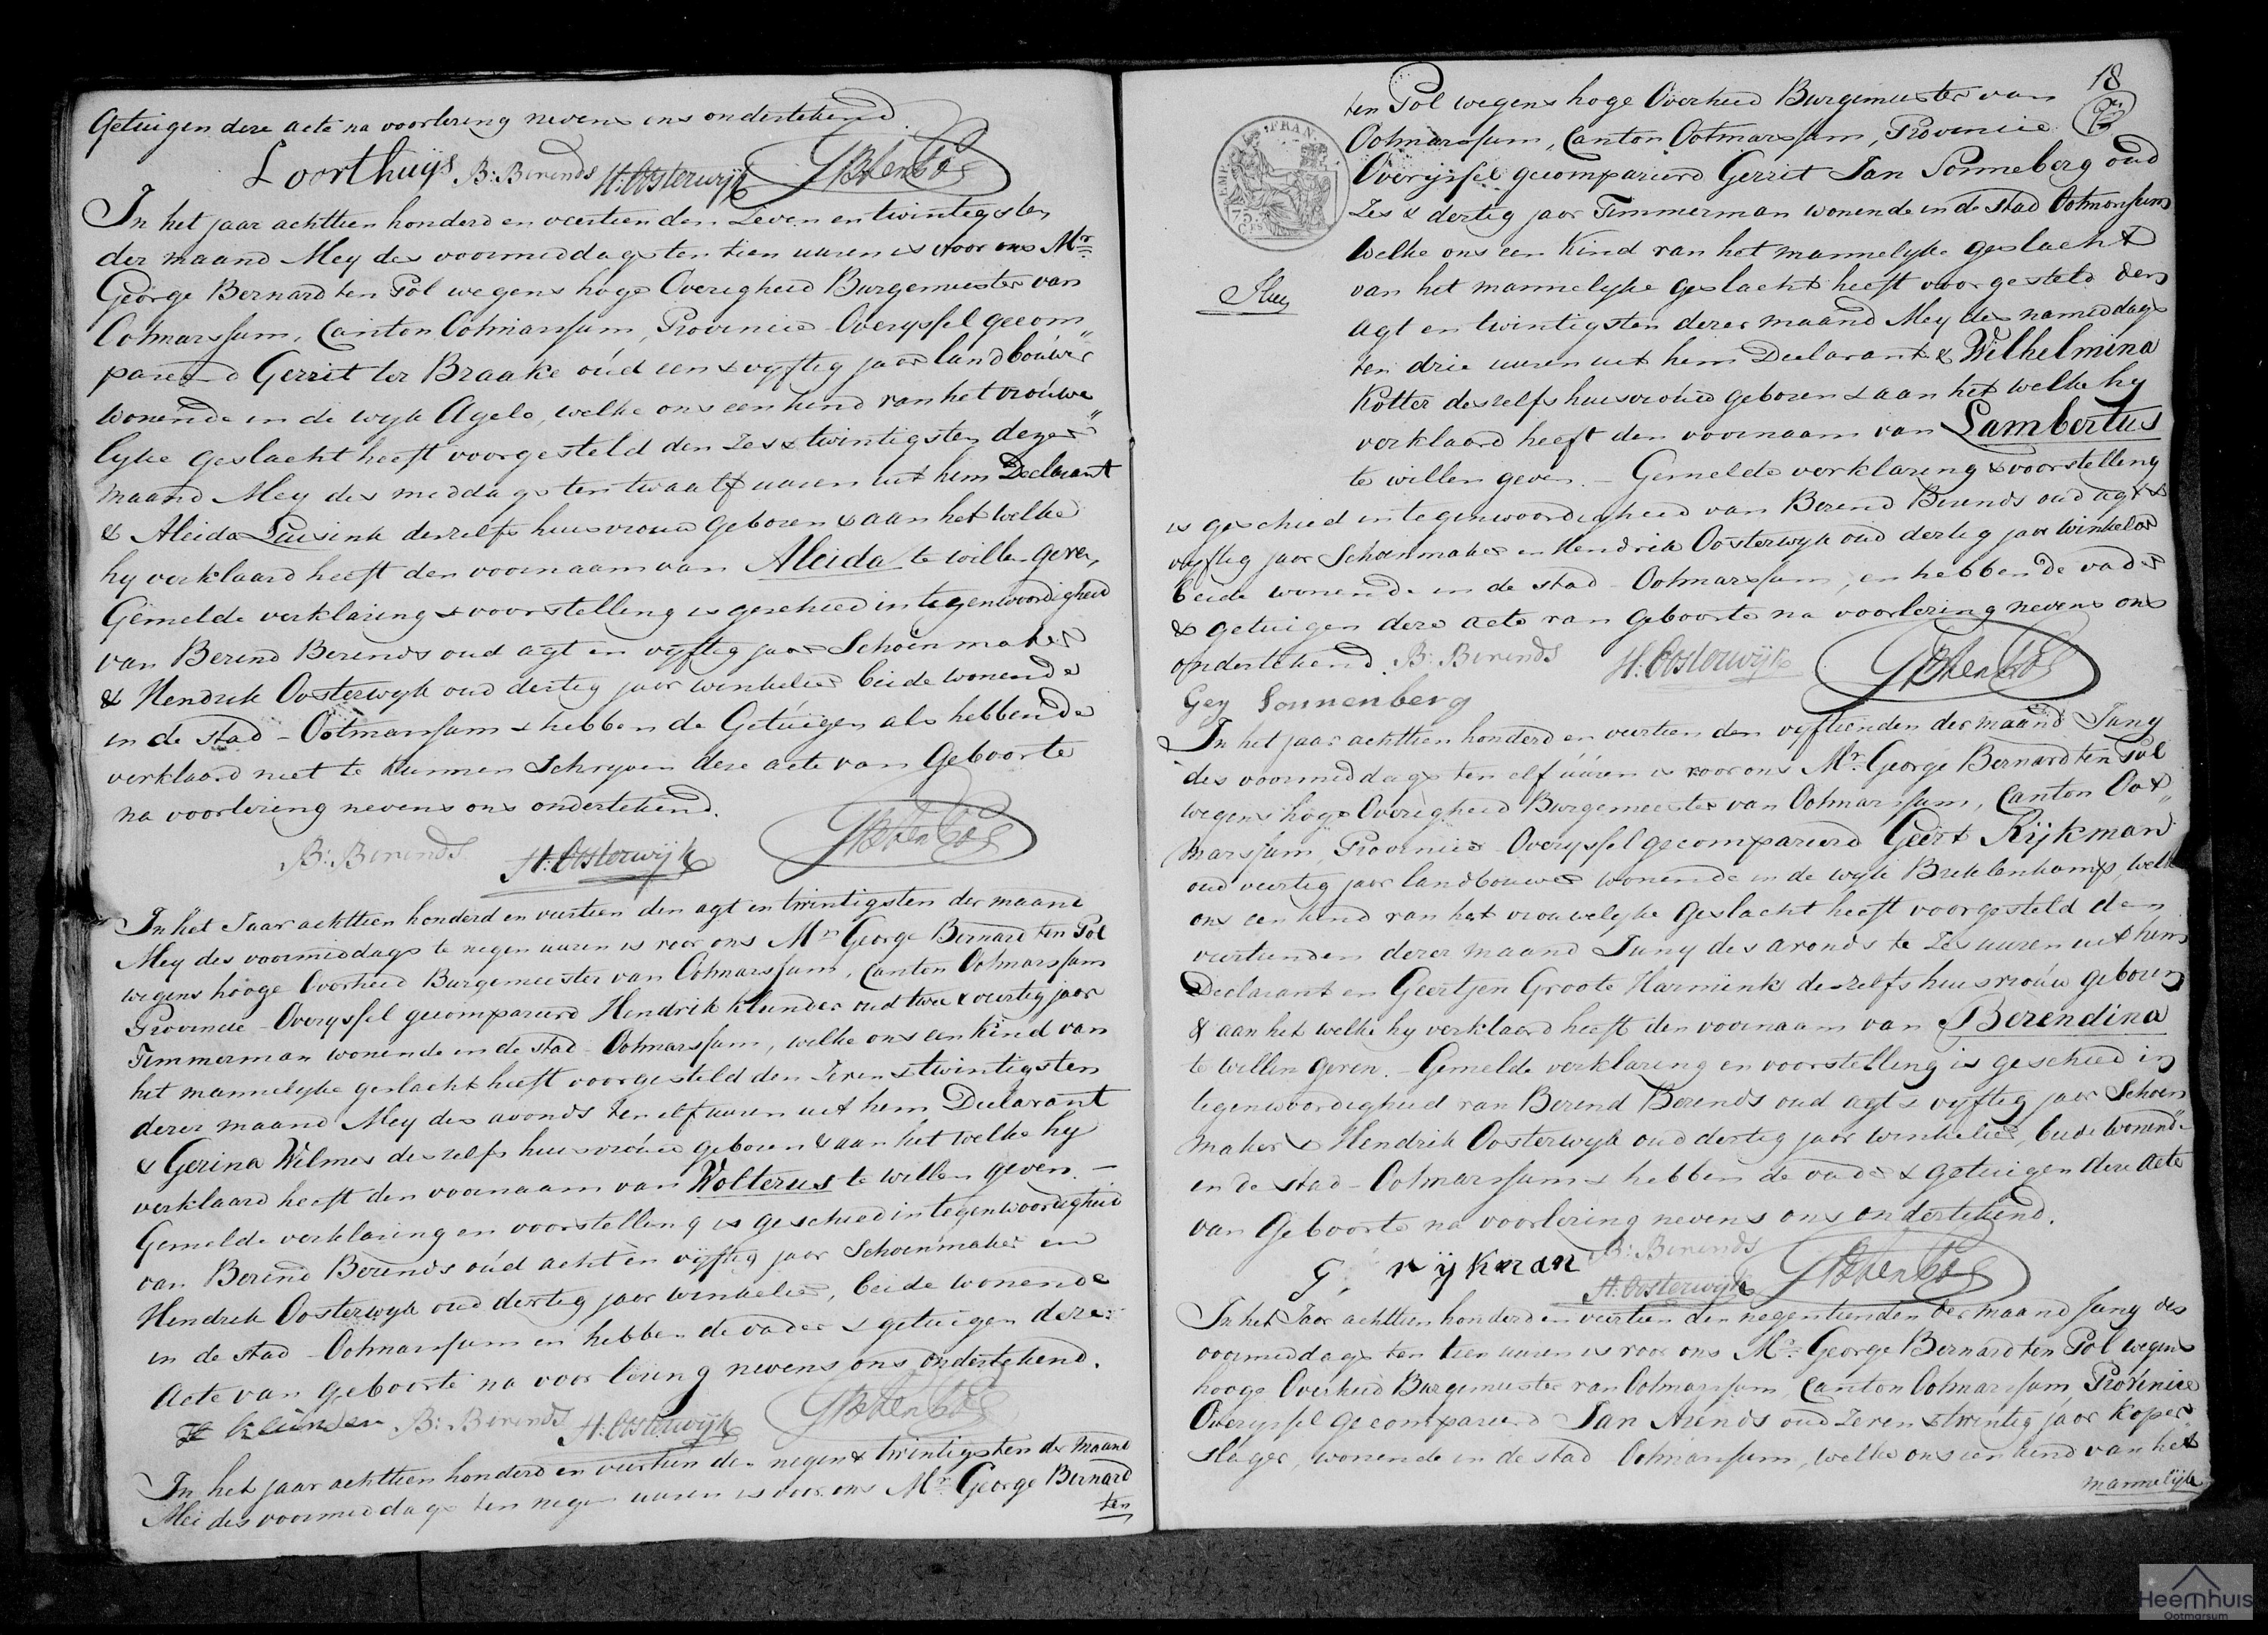 Getuigen deze acte na voorlezing nevens ons ondertekend
Loorthuijs B: Berends H: Oosterwijk GBtenPol
In het jaar achttien honderd en veertien den Zeven en twintigsten
der maand Mey des voormiddags ten tien uuren is voor ons Mr
George Bernard ten Pol wegens hoge Overigheid Burgemeester van
Ootmarssum, Canton Ootmarssum, Provincie Overyssel gecom„
pareerd Gerrit ter Braake oúd een & vyftig jaar landboúwer
wonende in de wyk Agelo, welke ons een kind van het vroúwe„
lyke geslacht heeft voorgesteld den Zes & twintigsten dezer
maand Mey des middags ten twaalf uuren uit hem Declarant
& Aleida Luisink deszelfs huisvrouw geboren & aan het welke
hy verklaard heeft den voornaam van Aleida te willen geven,
Gemelde verklaring & voorstelling is geschied in tegenwoordigheid
van Berend Berends oud agt en vyftig jaar Schoenmaker
& Hendrik Oosterwyk oud dertig jaar winkelier beide wonende
in de stad Ootmarssum & hebben de Getúigen als hebbende
verklaard niet te kunnen Schryven deze acte van Geboorte
na voorlezing nevens ons ondertekend.
B: Berends H: Oosterwijk GBtenPol
In het Jaar achttien honderd en veertien den agt en twintigsten der maand
Mey des voormiddags te negen uuren is voor ons Mr George Bernard ten Pol
wegens hooge Overheid Burgemeester van Ootmarssum, Canton Ootmarssum
Provincie Overyssel gecompareerd Hendrik Klunder oud twee & veertig jaar
Timmerman wonende in de stad Ootmarssum, welke ons een kind van
het mannelyke geslacht heeft voorgesteld den Zeven & twintigsten
dezer maand Mey des avonds ten elf uuren uit hem Declarant
& Gerina Wilmes deszelfs huisvroúw geboren & aan het welke hy
verklaard heeft den voornaam van Wolterus te willen geven. —
Gemelde verklaring en voorstelling is geschied in tegenwoordigheid
van Berend Berends oúd acht en vyftig jaar Schoenmaker en
Hendrik Oosterwyk oud dertig jaar winkelier, beide wonende
in de stad Ootmarssum en hebben de vader & getuigen deze
Acte van geboorte na voorlezing nevens ons ondertekend.
H Klunder B: Berends H: Oosterwijk GBtenPol
In het jaar achttien honderd en veertien den negen & twintigsten der maand
Mei des voormiddags ten negen uuren is voor ons Mr George Bernard
ten
18
ten Pol wegens hoge Overheid Burgemeester van
Ootmarssum, Canton Ootmarssum, Provincie
Overijssel gecompareerd Gerrit Jan Sonneberg oud
Zes & dertig jaar Timmerman wonende in de stad Ootmarssum
welke ons een Kind van het mannelyke geslacht
van het mannelyke geslacht heeft voorgesteld den
agt en twintigsten dezer maand Mey des namiddags
ten drie uuren uit hem Declarant & Wilhelmina
Kotter deszelfs huisvroúw geboren & aan het welke hy
verklaard heeft den voornaam van Lambertus
te willen geven. — Gemelde verklaring & voorstelling
is geschied in tegenwoordigheid van Berend Berends oud agt &
vyftig jaar Schoenmaker en Hendrik Oosterwyk oud dertig jaar winkelier
beide wonende in de stad Ootmarssum, en hebben de vader
& getuigen deze acte van geboorte na voorlezing nevens ons
ondertekend. B: Berends H: Oosterwijk GBtenPol
Gey Sonnenberg
In het jaar achttien honderd en veertien den vyftienden der maand Juny
des voormiddags ten elf úúren is voor ons Mr George Bernard ten Pol
wegens hoge Overigheid Burgemeester van Ootmarssum, Canton Oot„
marssum, Provincie Overyssel gecompareerd Geert Rijkman
oud veertig jaar landbouwer wonende in de wyk Breklenkamp, welke
ons een kind van het vrouwelyke geslacht heeft voorgesteld den
veertienden dezer maand Juny des avonds te Zes uuren uit hem
Declarant en Geertjen Groote Harmink deszelfs huisvroúw geboren
& aan het welke hy verklaard heeft den voornaam van Berendina
te willen geven. — Gemelde verklaring en voorstelling is geschied in
tegenwoordigheid van Berend Berends oud agt & vyftig jaar Schoen
maker & Hendrik Oosterwyk oud dertig jaar winkelier, beide wonende
in de stad Ootmarssum & hebben de vader & getuigen deze acte
van Geboorte na voorlezing nevens ons ondertekend.
G: rijkman B: Berends
H: Oosterwijk GBtenPol
In het Jaar achttien honderd en veertien den negentienden der maand Juny des
voormiddags ten tien uuren is voor ons Mr George Bernard ten Pol wegens
hooge Overheid Burgemeester van Ootmarssum, Canton Ootmarssum Provincie
Overyssel gecompareerd Jan Arends oud Zeven & twintig jaar Koper„
slager, wonende in de stad Ootmarssum, welke ons een kind van het
mannelijke
Heemhuis
Ootmarsum